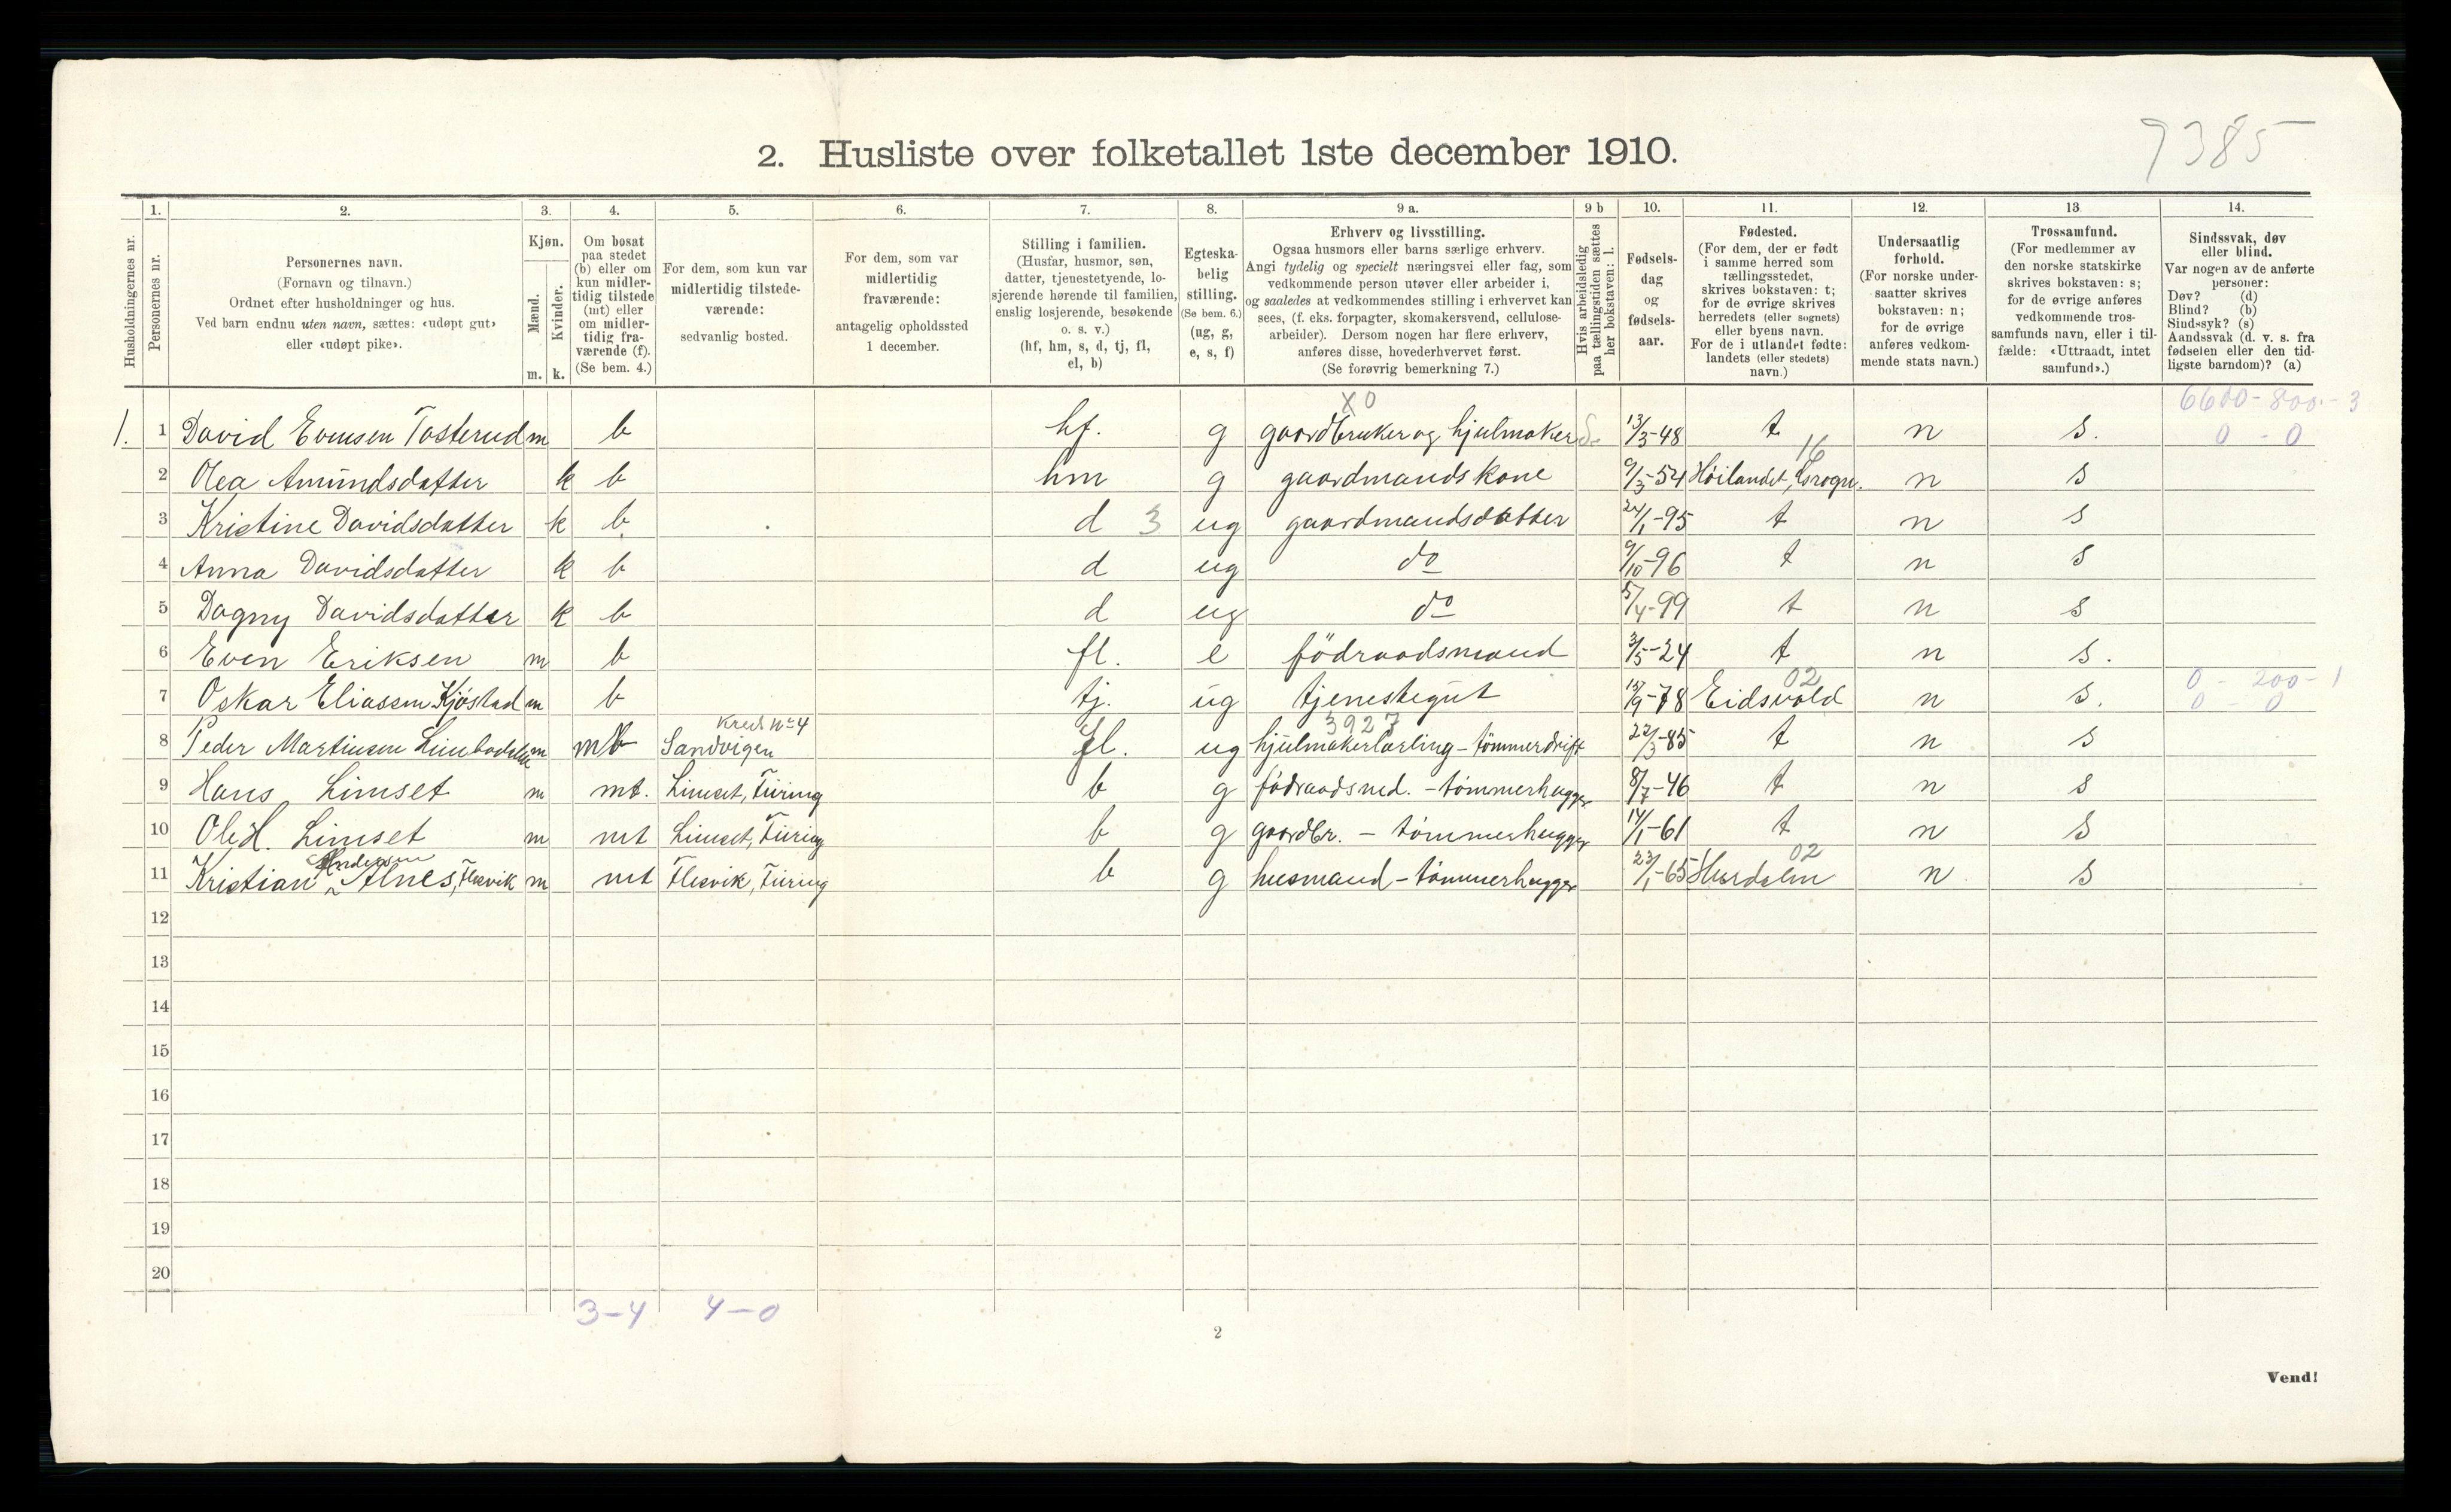 7385
2. Husliste over folketallet 1ste december 1910.
Husholdningernes nr.
1.
Personernes nr.
2.
Personernes navn.
(Fornavn og tilnavn.)
Ordnet efter husholdninger og hus.
Ved barn endnu uten navn, sættes: «udøpt gut»
eller «udøpt pike».
3.
Kjøn.
Mænd.
Kvinder.
m. k.
4.
Om bosat
paa stedet
(b) eller om
kun midler-
tidig tilstede
(mt) eller
om midler-
tidig fra-
værende (f).
(Se bem. 4.)
5.
For dem, som kun var
midlertidig tilstede-
værende:
sedvanlig bosted.
6.
For dem, som var
midlertidig
fraværende:
antagelig opholdssted
1 december.
7.
Stilling i familien.
(Husfar, husmor, søn,
datter, tjenestetyende, lo-
sjerende hørende til familien,
enslig losjerende, besøkende
o. s. v.)
(hf, hm, s, d, tj, fl,
el, b)
8.
Egteska-
belig
stilling.
(Se bem. 6.)
(ug, g,
e, s, f)
9 a.
Erhverv og livsstilling.
Ogsaa husmors eller barns særlige erhverv.
Angi tydelig og specielt næringsvei eller fag, som
vedkommende person utøver eller arbeider i,
og saaledes at vedkommendes stilling i erhvervet kan
sees, (f. eks. forpagter, skomakersvend, cellulose-
arbeider). Dersom nogen har flere erhverv,
anføres disse, hovederhvervet først.
(Se forøvrig bemerkning 7.)
9 b
Hvis arbeidsledig
paa tællingstiden sættes
her bokstaven: l.
10.
Fødsels-
dag
og
fødsels-
aar.
11.
Fødested.
(For dem, der er født
i samme herred som
tællingsstedet,
skrives bokstaven: t;
for de øvrige skrives
herredets (eller sognets)
eller byens navn.
For de i utlandet fødte:
landets (eller stedets)
navn.)
12.
Undersaatlig
forhold.
(For norske under-
saatter skrives
bokstaven: n;
for de øvrige
anføres vedkom-
mende stats navn.)
13.
Trossamfund.
(For medlemmer av
den norske statskirke
skrives bokstaven: s;
for de øvrige anføres
vedkommende tros-
samfunds navn, eller i til-
fælde: «Uttraadt, intet
samfund».)
14.
Sindssvak, døv
eller blind.
Var nogen av de anførte
personer:
Døv? (d)
Blind? (b)
Sindssyk? (s)
Aandssvak (d. v. s. fra
fødselen eller den tid-
ligste barndom)? (a)
X0 6600 - 800 - 3
1. 1 David Evensen Tosterud m b hf. g gaardbruker og hjulmaker 13/3-48 t n s. 0 - 0
16
2 Olea Amundsdatter k b hm g gaardmandskone 9/3-54 Høilandet, n s
3 Kristine Davidsdatter k b d 3 ug gaardmandsdatter 24/1-95 t n s
4 Anna Davidsdatter k b d ug do 9/10-96 t n s
5 Dagny Davidsdatter k b d ug do 5/4-99 t n s
6 Even Eriksen m b fl. e födraadsmand 3/5-24 t n s.
02 0 - 200 - 1
7 Oskar Eliassen Kjöstad m b tj. ug tjenestegut 15/9-78 Eidsvold n s. 0 - 0
Kreds No 4 3927
8 Peder Martinsen m Sandvigen fl. ug hjulmakerlærling - tömmerdrift 22/3-85 t n s
9 Hans Limset m mt. Limset, Fiiring b g födraadsmd. - tömmerhugger 8/7-46 t n s
10 Ole H. Limset m mt Limset, Fiiring b g gaardbr. - tömmerhugger 14/1-61 t n s
Andersen 02
11 Kristian Alnes, Flesvik m mt Flesvik, Fiiring b g husmand - tömmerhugger 23/1-65 Hurdalen n s
12
13
14
15
16
17
18
19
20
3-4 4-0
2
Vend!